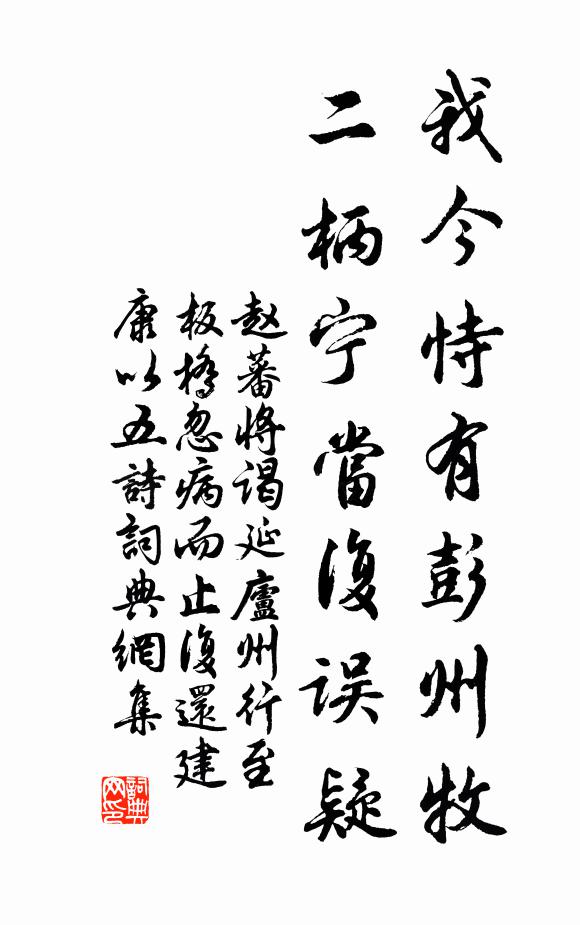 我今恃有彭州牧
二柄宁當復误疑
赵蕃将谒延廬州行至
板橋忽病而止復還建
康以五詩詞典網集
詞典網印